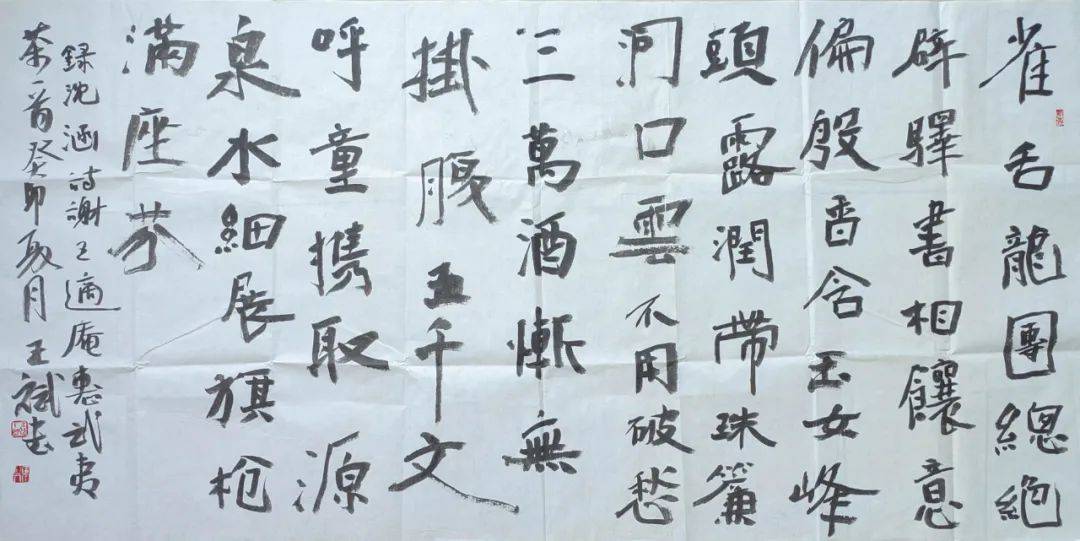 雀舌龍團總絕
群驛書相饟意
偏殷香含玉女峰
頭露潤帶珠簾
洞口雲不用破愁
三萬酒慚無
掛腹五千文
呼童携取源
泉水細展旗枪
滿座芬
録沈涵詩謝王適庵惠武夷
茶一首癸卯夏月王斌书